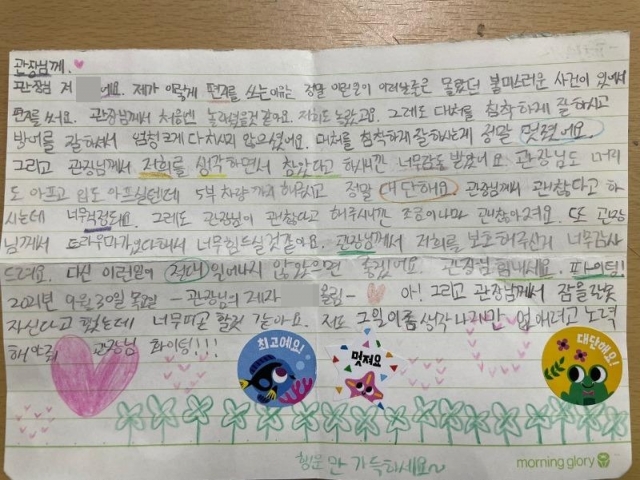 관장님께. ♥
관장님 저 에요. 제가 이렇게 편지를 쓰는 이유는 정말 이런일이 일어날줄은 몰랐던 불미스러운 사건이 있어서
편지를 써요. 관장님께서 처음엔 놀라셨을것 같아요. 저희도 놀랐고요. 그래도 대처를 침착하게 잘 하시고
방어를 잘하셔서 엄청 크게 다치시지 않으셨어요. 대처를 침착하게 잘하시는게 정말 멋졌어요.
그리고 관장님께서 저희를 생각하면서 참았다고 하시니깐 너무 감동 받았어요 관장님도 머리
도 아프고 입도 아프실텐데 5부 차량 까지 해주시고 정말 대단해요 관장님께서 괜찮다고 하
시는데 너무걱정돼요. 그래도 관장님이 괜찮다고 해주시니깐 조금이나마 괜찮아져요. 또 관장
님께서 트라우마가 있다해서 너무 힘드실것 같아요. 관장님께서 저희를 보호해주신거 너무 감사
드려요. 다신 이런일이 절대 일어나지 않았으면 좋겠어요. 관장님 힘내세요. 파이팅!
2021년 9월 30일 목요일 - 관장님의 제자 올림 - ♡ 아! 그리고 관장님께서 잠을 잘 못
자신다고 했는데 너무 피곤 할것 같아요. 저도 그 일이 생각 나지만 없애려고 노력
해 관장님 화이팅!!!
최고에요!
멋져요
대단해요!
행운 만 가득하세요~
morning glory